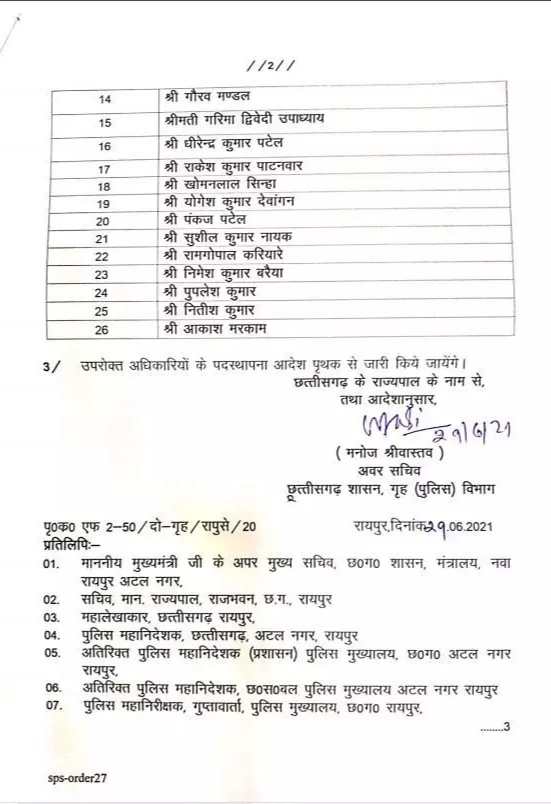 //2//
14 श्री गौरव मण्डल
15 श्रीमती गरिमा द्विवेदी उपाध्याय
16 श्री धीरेन्द्र कुमार पटेल
17 श्री राकेश कुमार पाटनवार
18 श्री खोमनलाल सिन्हा
19 श्री योगेश कुमार देवांगन
20 श्री पंकज पटेल
21 श्री सुशील कुमार नायक
22 श्री रामगोपाल करियारे
23 श्री निमेश कुमार बरैया
24 श्री पुपलेश कुमार
25 श्री नितीश कुमार
26 श्री आकाश मरकाम
3/ उपरोक्त अधिकारियों के पदस्थापना आदेश पृथक से जारी किये जायेंगे।
छत्तीसगढ़ के राज्यपाल के नाम से,
तथा आदेशानुसार,
29/6/21
( मनोज श्रीवास्तव )
अवर सचिव
छत्तीसगढ़ शासन, गृह (पुलिस) विभाग
पृ0क0 एफ 2-50/दो-गृह/रापुसे/20 रायपुर,दिनांक29.06.2021
प्रतिलिपिः–
01. माननीय मुख्यमंत्री जी के अपर मुख्य सचिव, छ0ग0 शासन, मंत्रालय, नवा
रायपुर अटल नगर,
02. सचिव, मान. राज्यपाल, राजभवन, छ.ग., रायपुर
03. महालेखाकार, छत्तीसगढ़ रायपुर,
04. पुलिस महानिदेशक, छत्तीसगढ़, अटल नगर, रायपुर
05. अतिरिक्त पुलिस महानिदेशक (प्रशासन) पुलिस मुख्यालय, छ0ग0 अटल नगर
रायपुर,
06. अतिरिक्त पुलिस महानिदेशक, छ0स0बल पुलिस मुख्यालय अटल नगर रायपुर
07. पुलिस महानिरीक्षक, गुप्तावार्ता, पुलिस मुख्यालय, छ0ग0 रायपुर,
........3
sps-order27